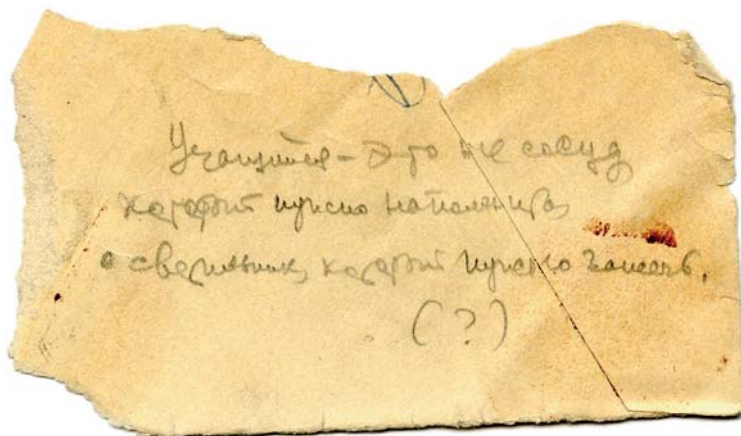 Учащийся - это не сосуд
который нужно наполнить,
а светильник, который нужно зажечь.
(?)